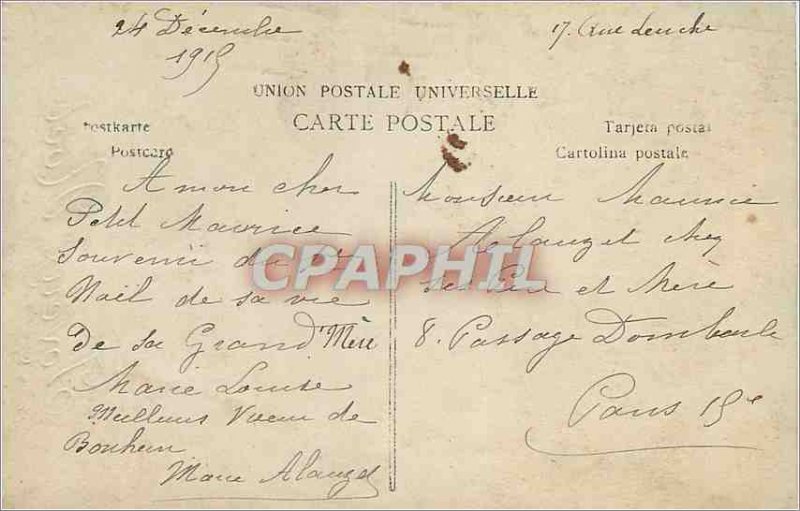 24 Décembre
1915
17. Rue
UNION POSTALE UNIVERSELLE
CARTE POSTALE
Postkarte
Postcard
Tarjeta postal
Cartolina postale
A mon cher
Petit Maurice
Souvenir du 1er
Noël de sa vie
De sa Grand'Mère
Marie Louise
Meilleurs Vœux de
Bonheur
Marie Alauzet
Monsieur Maurice
Alauzet chez
ses Père et Mère
8. Passage Dombasle
Paris 15e
CPAPHIL